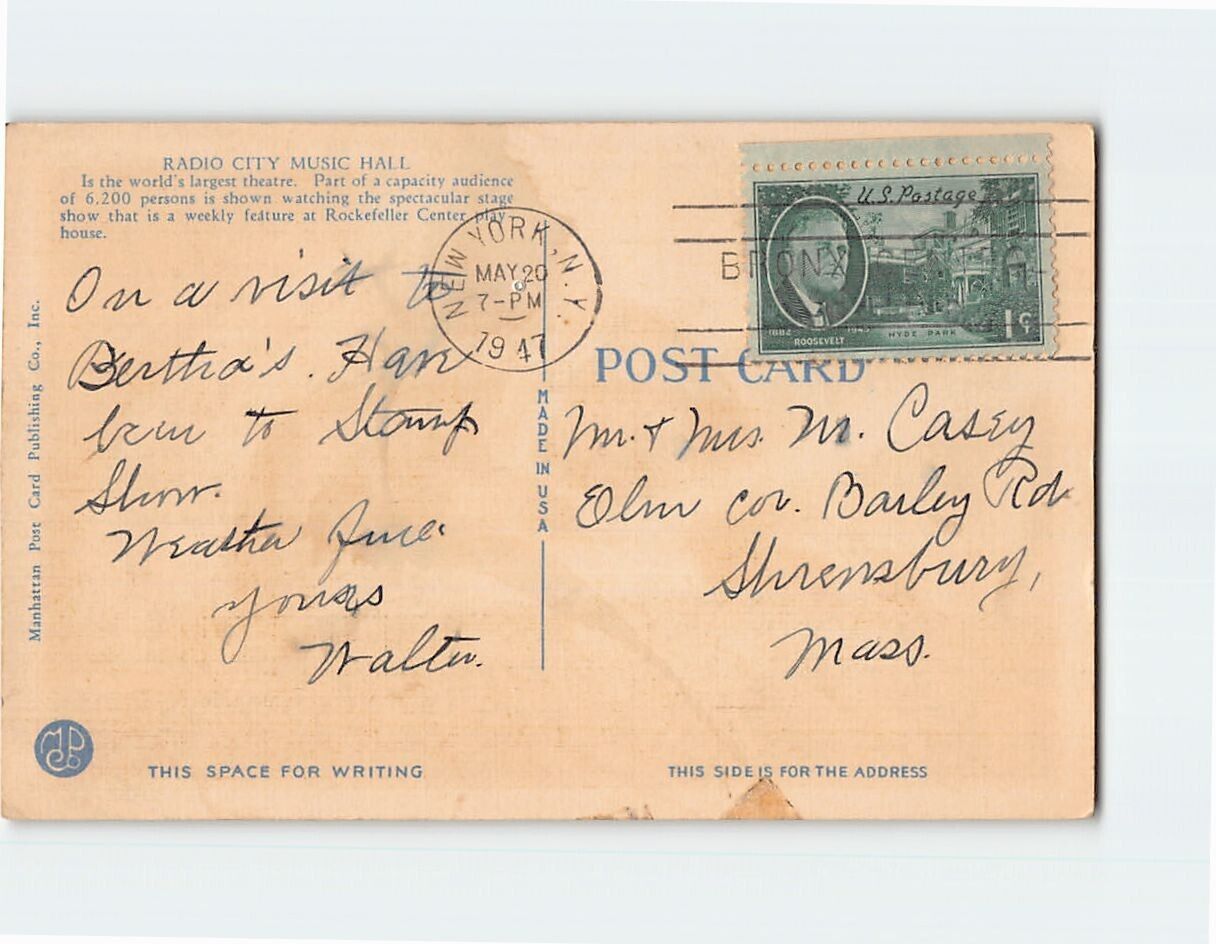 RADIO CITY MUSIC HALL
Is the world's largest theatre. Part of a capacity audience
of 6,200 persons is shown watching the spectacular stage
show that is a weekly feature at Rockefeller Center play
house.
On a visit to
Bertha's. Have
been to Stamp
Show.
Weather fine.
Yours
Walter.
Manhattan Post Card Publishing Co., Inc.
THIS SPACE FOR WRITING
NEW YORK, N.Y.
MAY 20
7-PM
1947
MADE IN USA
U.S. Postage
BRONX
1882 1945
ROOSEVELT
HYDE PARK
1¢
POST CARD
Mr. + Mrs. M. Casey
Elm cor. Barley Rd
Shrewsbury,
Mass.
THIS SIDE IS FOR THE ADDRESS